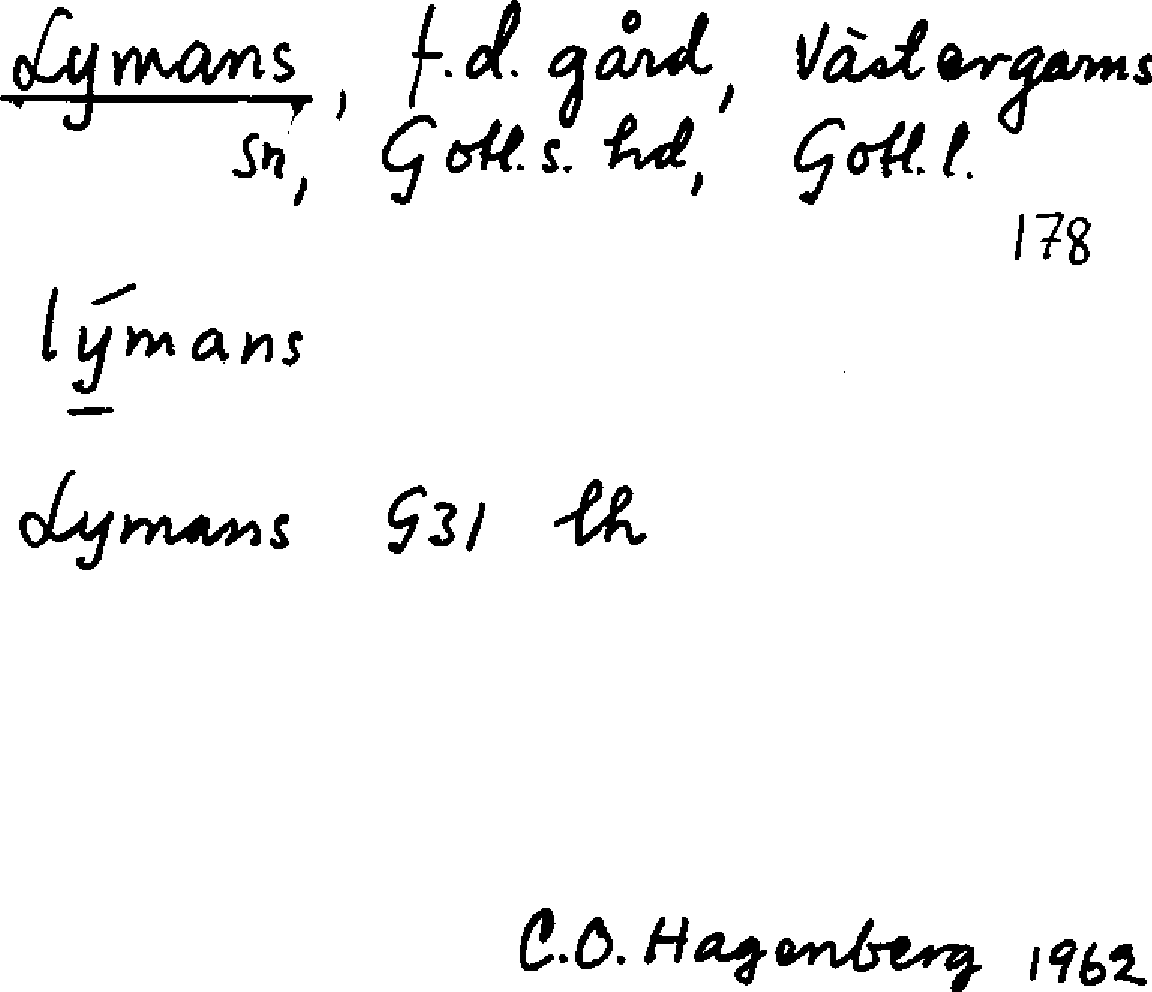 Lymans, f.d. gård, Västergarns
sn, Gotl. s. hd, Gotl. l.
178
lýmans
Lymans G31 lh
C.O. Hagenberg 1962